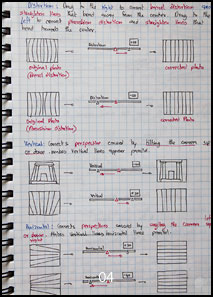 Distortion: Drag to the right to correct barrel distortion and
straighten lines that bend away from the center. Drag to the
left to correct pincushion distortion and straighten lines that
bend towards the center.
Distortion
original photo
(barrel distortion)
corrected photo
Distortion
Original Photo
(Pincushion distortion)
corrected Photo
Vertical: corrects perspective caused by tilting the camera up
or down. makes vertical lines appear parallel.
Vertical
Vertical
Horizontal: corrects perspective caused by
Makes horizontal lines parallel.
Horizontal
04